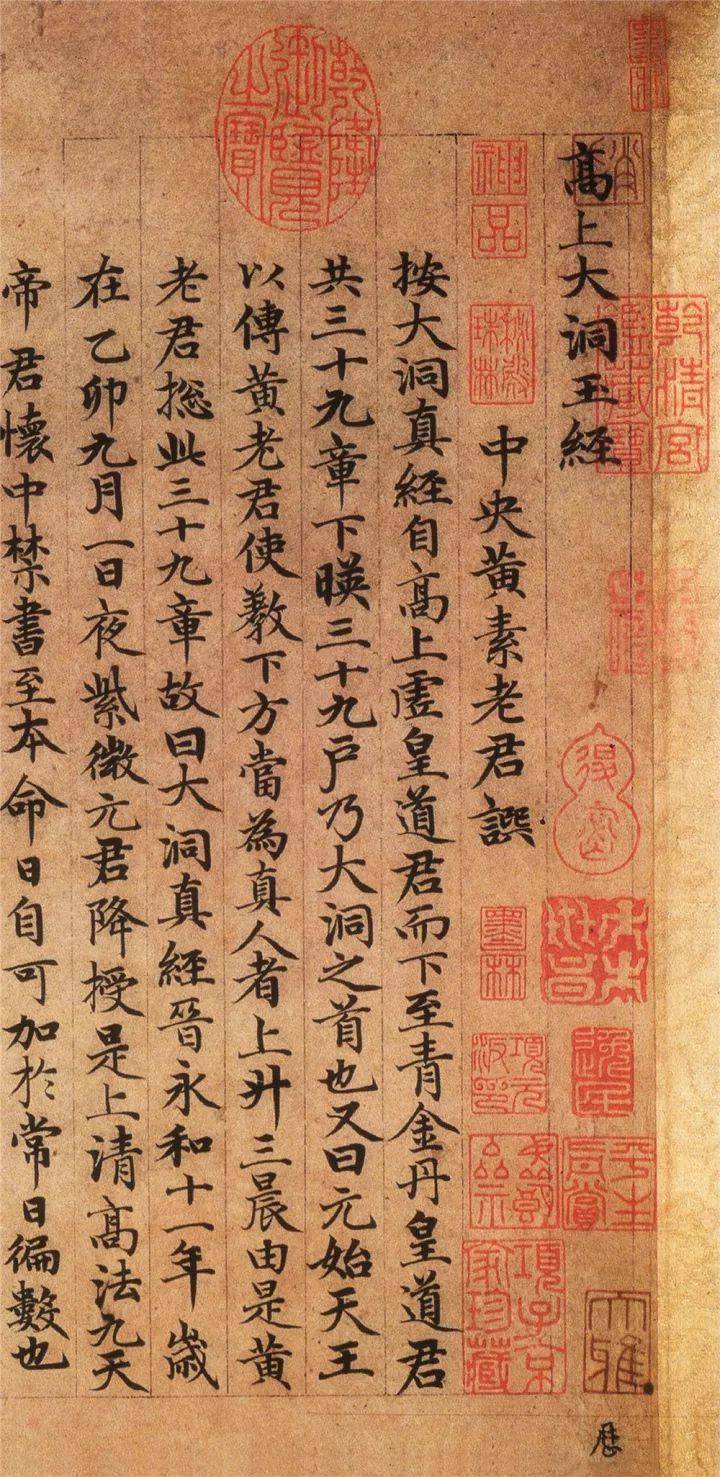 髙上大洞玉經
乾清宮鑒藏寶
子孫世昌
平生真賞
大雅
歷
中央黄素老君譔
神品
秘殿珠林
墨林
項元汴印
項子京家珍藏
乾隆御覽之寶
按大洞真經自髙上虛皇道君而下至青金丹皇道君
共三十九章下暎三十九户乃大洞之首也又曰元始天王
以傳黄老君使教下方當為真人者上升三晨由是黄
老君捴此三十九章故曰大洞真經晉永和十一年歲
在乙卯九月一日夜紫微元君降授是上清髙法九天
帝君懷中禁書至本命日自可加於常日徧數也